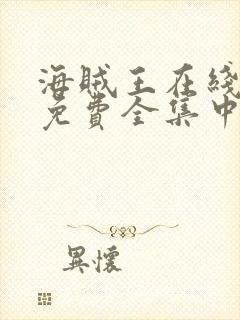 海贼王在綫
免費全集中
異懷